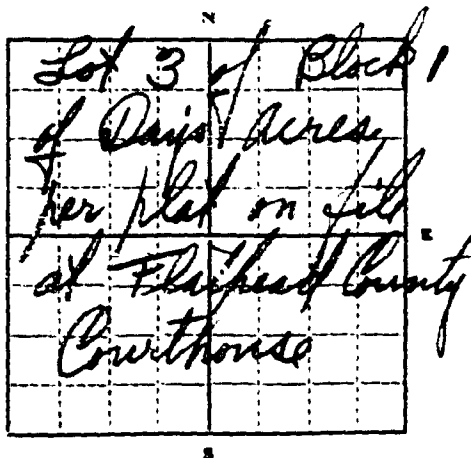 N
Lot 3 of Block 1
of Day's Acres,
per plat on file
E
at Flathead County
Courthouse
S